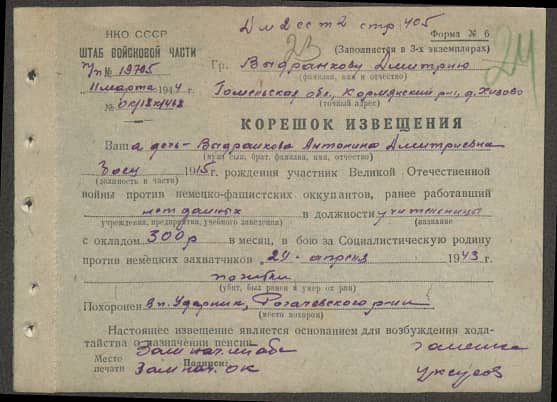 Дм 2 ест 2 стр 405
НКО СССР
Форма № 6
ШТАБ ВОЙСКОВОЙ ЧАСТИ
(Заполняется в 3-х экземплярах)
23
24
п/п № 19705
Гр. Выдранкову Дмитрию
(фамилия, имя и отчество)
11 марта 1944 г.
Гомельская обл., Кормянский р-н, д. Хизово
(точный адрес)
№
КОРЕШОК ИЗВЕЩЕНИЯ
Ваша дочь - Выдранкова Антонина Дмитриевна
(муж, сын, брат, фамилия, имя, отчество)
Боец 1915 г. рождения участник Великой Отечественной
(должность в части)
войны против немецко-фашистских оккупантов, ранее работавший
нет данных в должности учительницы
(учреждения, предприятия, учебного заведения) (название)
с окладом 300 р в месяц, в бою за Социалистическую родину
против немецких захватчиков „24" апреля 1943 г.
погибла
(убит, был ранен и умер от ран)
Похоронен в п. Ударник, Рогачевского р-на
(место похорон)
Настоящее извещение является основанием для возбуждения хода-
тайства о назначении пенсии.
Зам нач. штаба
Место
печати
Подписи:
Зам нач. ОК
Уксусов